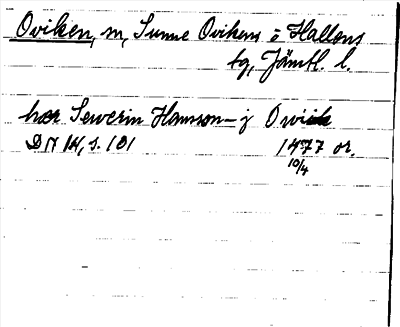 Oviken, sn, Sunne Ovikens o Hallens
tg, Jämtl. l.
her Sewerin Hansson j Owiik
DN 14, s. 101 1477 or.
10/4